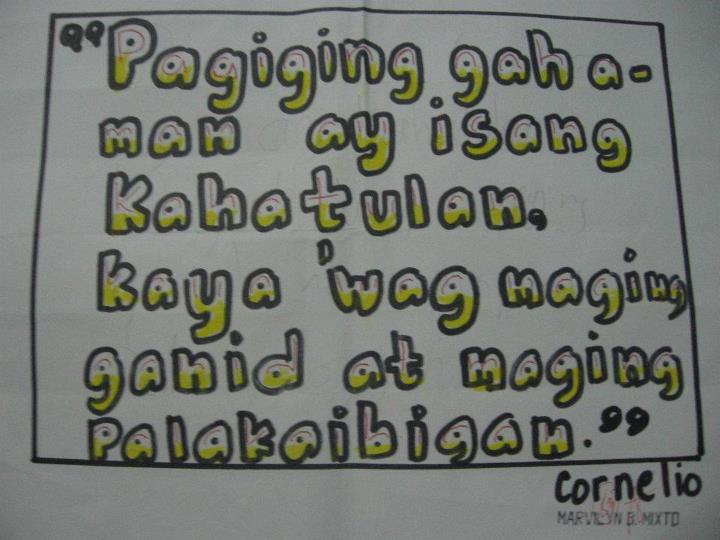 "Pagiging gaha-
man ay isang
Kahatulan,
kaya 'wag maging
ganid at maging
Palakaibigan."
Cornelio
MARVILYN B. MIXTO